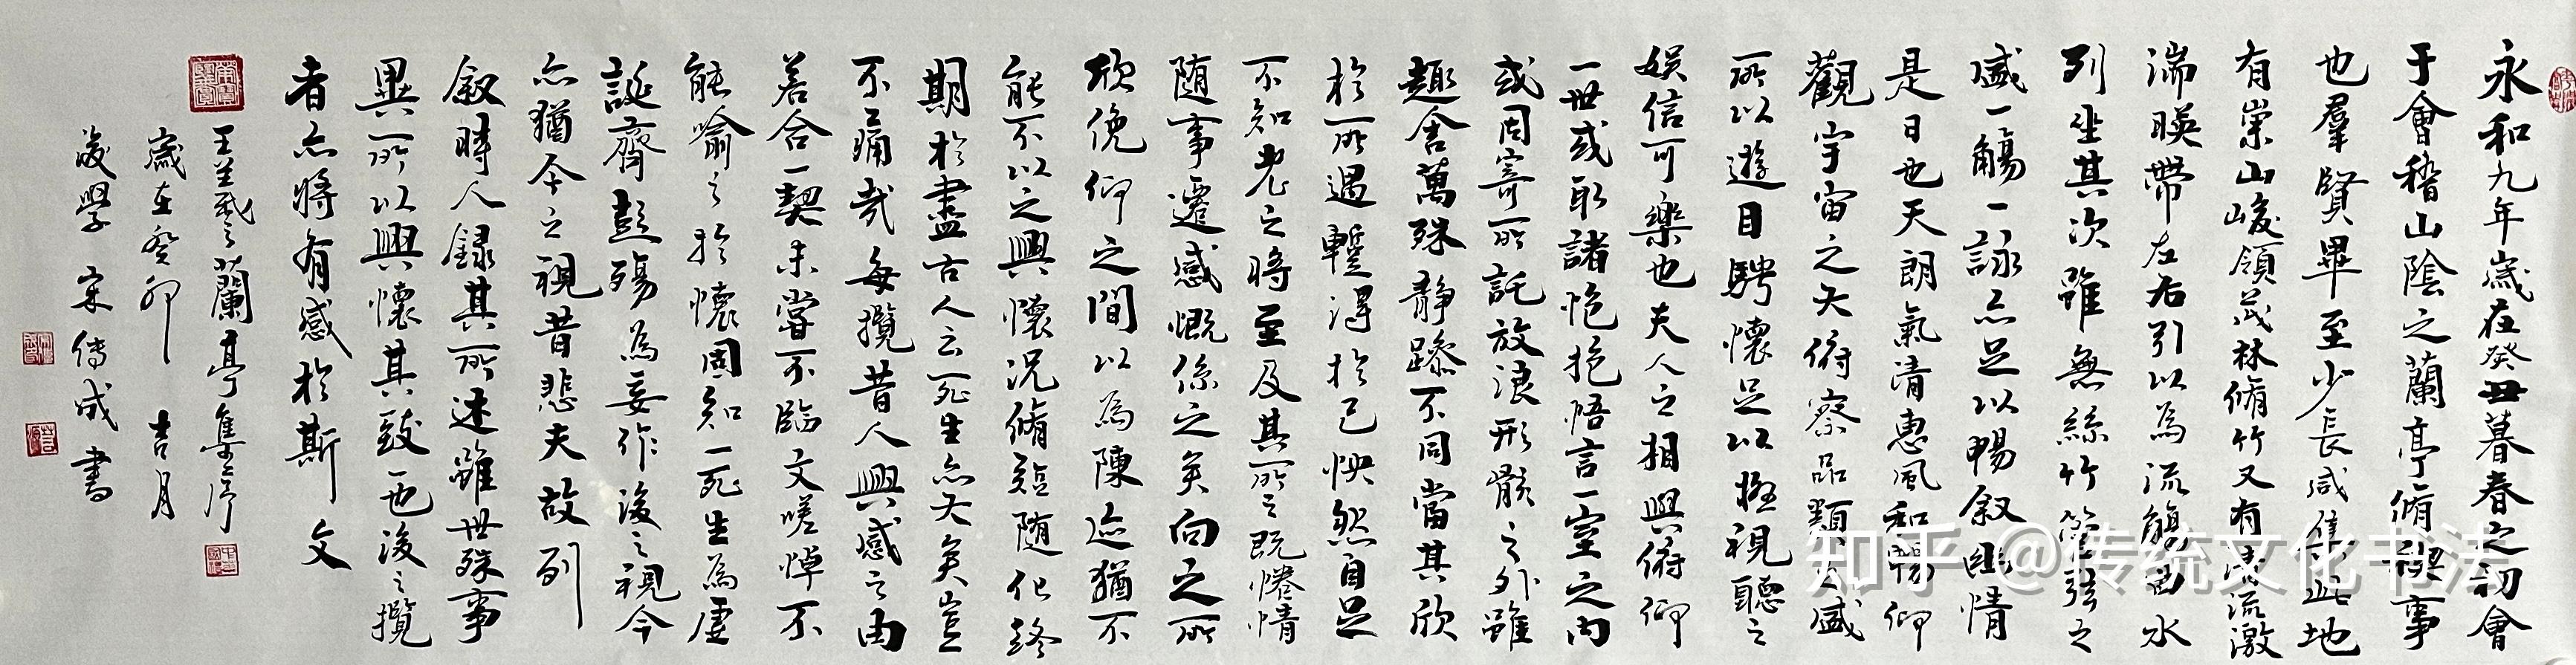 永和九年歲在癸丑暮春之初會
于會稽山陰之蘭亭脩禊事
也羣賢畢至少長咸集此地
有崇山峻領茂林脩竹又有清流激
湍暎帶左右引以為流觴曲水
列坐其次雖無絲竹管弦之
盛一觴一詠亦足以暢叙幽情
是日也天朗氣清惠風和暢仰
觀宇宙之大俯察品類之盛
所以遊目騁懷足以極視聽之
娛信可樂也夫人之相與俯仰
一世或取諸懷抱悟言一室之內
或因寄所託放浪形骸之外雖
趣舍萬殊静躁不同當其欣
於所遇暫得於己怏然自足
不知老之將至及其所之既惓情
随事遷感慨係之矣向之所
欣俛仰之間以為陳迹猶不
能不以之興懷況脩短随化終
期於盡古人云死生亦大矣豈
不痛哉每攬昔人興感之由
若合一契未嘗不臨文嗟悼不
能喻之於懷固知一死生為虛
誕齊彭殤為妄作後之視今
亦猶今之視昔悲夫故列
叙時人録其所述雖世殊事
異所以興懷其致一也後之攬
者亦將有感於斯文
王羲之蘭亭集序
歲在癸卯 吉月
後學 宋傳成書
知乎 @传统文化书法